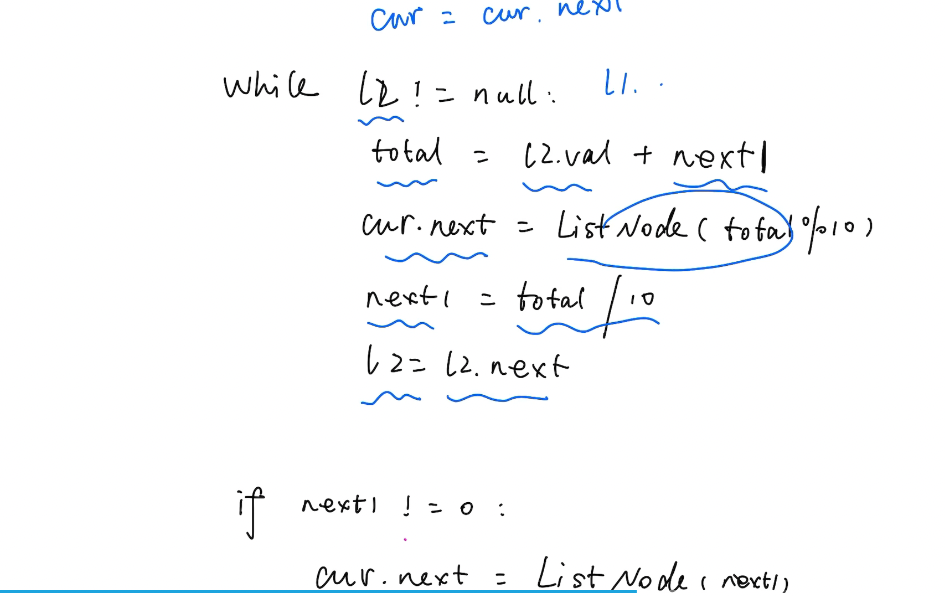 cur = cur.next
while l2 != null: l1..
total = l2.val + next1
cur.next = ListNode(total%10)
next1 = total/10
l2 = l2.next
if next1 != 0:
cur.next = ListNode(next1)